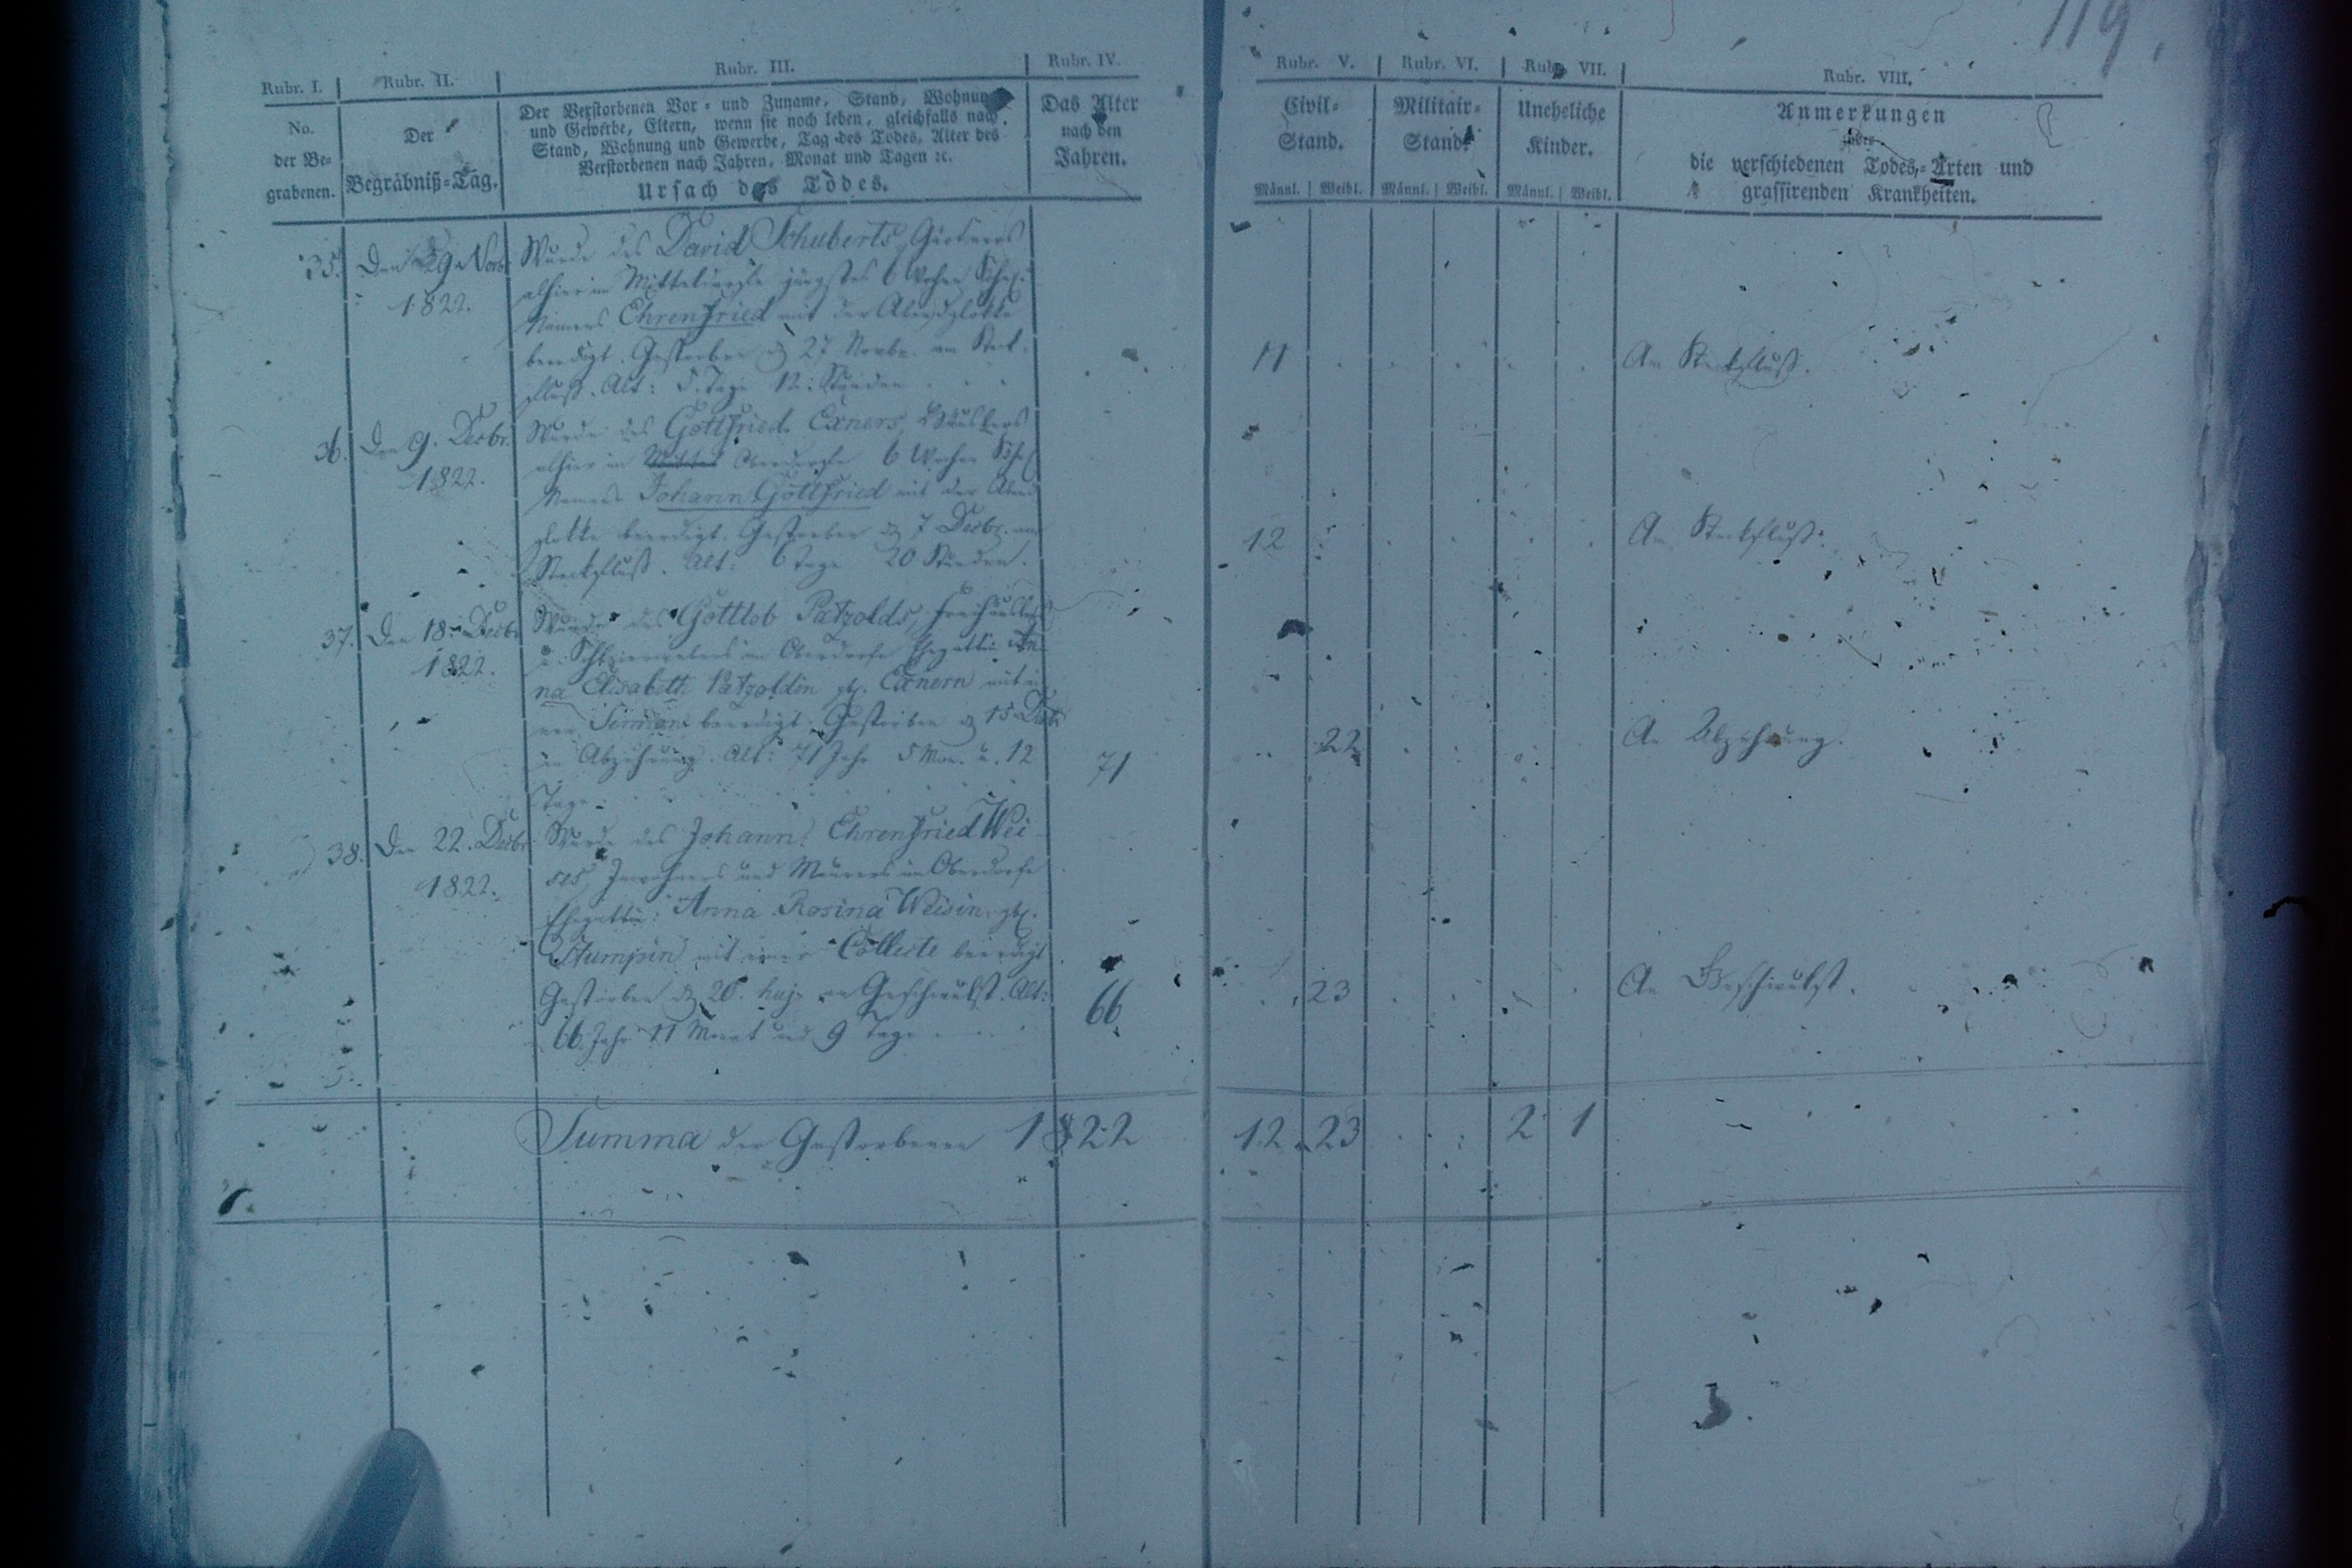 119.
Rubr. I.
No.
der Be-
grabenen.
Rubr. II.
Der
Begräbniß-Tag.
Rubr. III.
Der Verstorbenen Vor- und Zuname, Stand, Wohnung
und Gewerbe, Eltern, wenn sie noch leben, gleichfalls nach
Stand, Wohnung und Gewerbe, Tag des Todes, Alter des
Verstorbenen nach Jahren, Monat und Tagen ꝛc.
Ursach des Todes.
Rubr. IV.
Das Alter
nach den
Jahren.
Rubr. V.
Civil-
Stand.
Männl. Weibl.
Rubr. VI.
Militair-
Stand.
Männl. Weibl.
Rubr. VII.
Uneheliche
Kinder.
Männl. Weibl.
Rubr. VIII.
Anmerkungen
über
die verschiedenen Todes-Arten und
grassirenden Krankheiten.
35. Den 29. Novbr. Wurde des David Schuberts, Gärtners
1822. alhier im Mitteldorfe jüngstes 6 Wochen
Namens Ehrenfried mit der Abendglokke
beerdigt. Gestorben d 27 Novbr. am Stek-
fluß. Alt: 5. Tage 12. Stunden
11 Am Stekfluß.
36. Den 9. Decbr. Wurde des Gottfried Exners, Häuslers
1822. alhier im Oberdorfe 6 Wochen
Namens Johann Gottfried mit der Abend
glokke beerdigt. Gestorben d 7 Decbr. am
Stekfluß. Alt: 6 Tage 20 Stunden.
12 Am Stekfluß.
37. Den 18. Decbr. Wurde des Gottlob Patzolds, Freihäuslers
1822. u. im Oberdorfe Ehegattin An-
na Elisabeth Patzoldin gb. Exnern mit ei-
ner Sermon beerdigt. Gestorben d 15 Decbr
an Abzehrung. Alt: 71 Jahr 5 Mon. u. 12
Tage.
71 22 An Abzehrung.
38. Den 22. Decbr. Wurde des Johann Ehrenfried Wei-
1822. ses, Inwohners und Maurers im Oberdorfe
Ehegattin: Anna Rosina Weisin, gb.
Stumpin mit einer Collecte beerdigt
Gestorben d 20. huj. an Geschwulst. Alt:
66 Jahr 11 Monat und 9 Tage
66 23 An Geschwulst.
Summa der Gestorbenen 1822 12 23 2 1